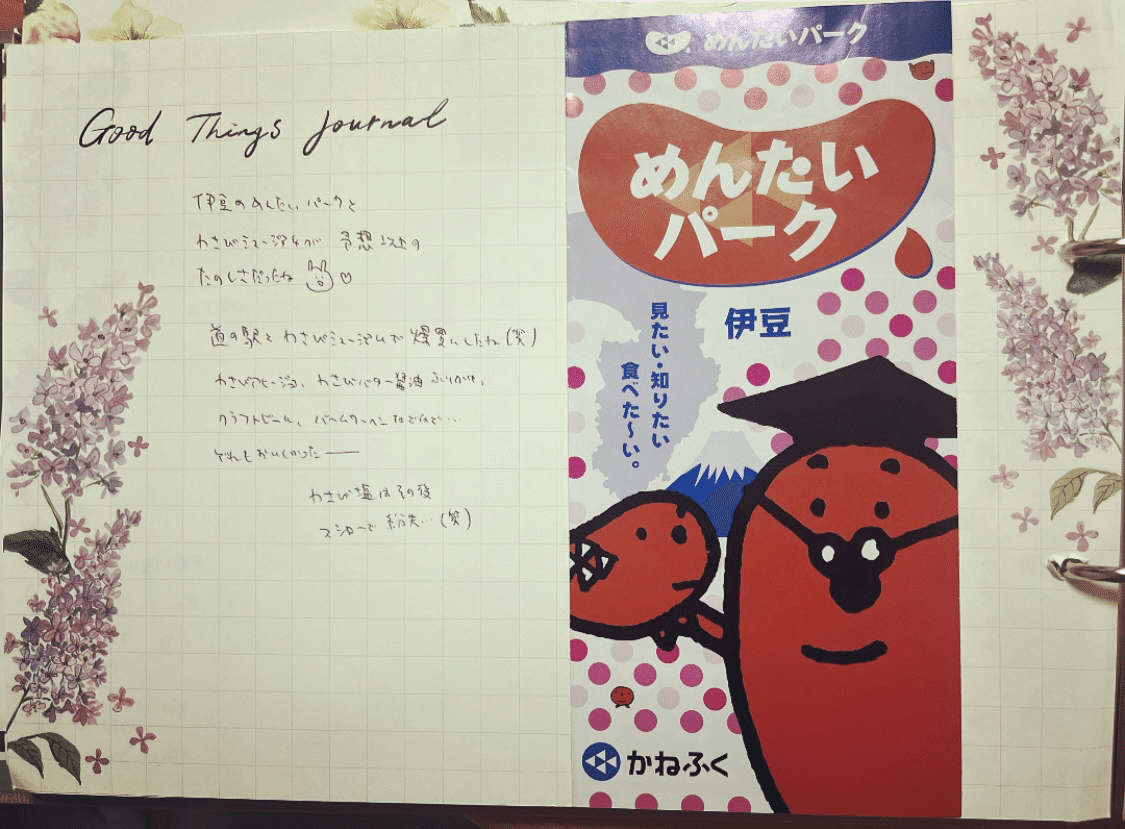 Good Things Journal
伊豆のめんたいパークと
わさびミュージアムが 予想以上の
たのしさだったね
道の駅とわさびミュージアムで爆買いしたね(笑)
わさびアヒージョ、わさびバター醤油ふりかけ、
クラフトビール、バームクーヘンなどなど…
どれもおいしかったー
わさび塩はその後
紛失…(笑)
めんたいパーク
めんたい
パーク
伊豆
見たい・知りたい
食べた〜い。
かねふく